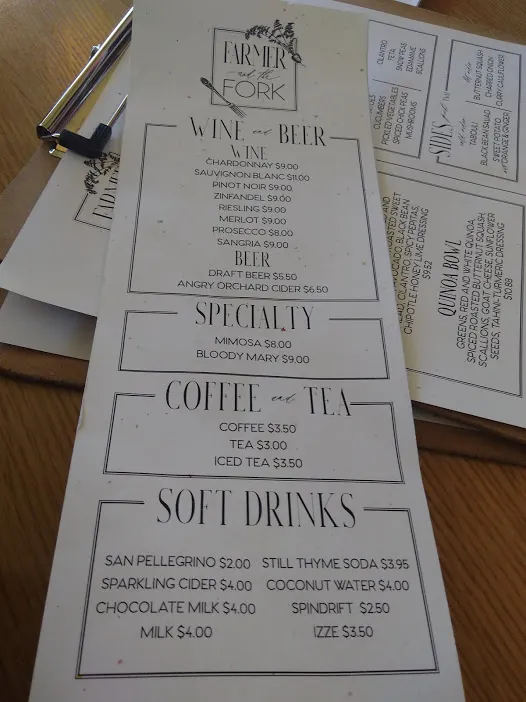 FARMER
and the
FORK
WINE and BEER
WINE
CHARDONNAY $9.00
SAUVIGNON BLANC $11.00
PINOT NOIR $9.00
ZINFANDEL $9.00
RIESLING $9.00
MERLOT $9.00
PROSECCO $8.00
SANGRIA $9.00
BEER
DRAFT BEER $5.50
ANGRY ORCHARD CIDER $6.50
SPECIALTY
MIMOSA $8.00
BLOODY MARY $9.00
COFFEE and TEA
COFFEE $3.50
TEA $3.00
ICED TEA $3.50
SOFT DRINKS
SAN PELLEGRINO $2.00 STILL THYME SODA $3.95
SPARKLING CIDER $4.00 COCONUT WATER $4.00
CHOCOLATE MILK $4.00 SPINDRIFT $2.50
MILK $4.00 IZZE $3.50
CUCUMBERS
PICKLED VEGETABLES
SPICED CHICK PEAS
MUSHROOMS
CILANTRO
FETA
SNOW PEAS
EDAMAME
SCALLIONS
SIDES
TABOULI
BLACK BEAN SALAD
SWEET POTATO,
ORANGE & GINGER
BUTTERNUT SQUASH
CHARRED ONION
CURRY CAULIFLOWER
ROASTED SWEET
AVOCADO, BLACK BEAN
CILANTRO, SPICY PEPITAS,
CHIPOTLE HONEY LIME DRESSING
$9.52
QUINOA BOWL
GREENS, RED AND WHITE QUINOA,
SPICED ROASTED BUTTERNUT SQUASH
SCALLIONS, GOAT CHEESE, SUNFLOWER
SEEDS, TAHINI-TURMERIC DRESSING
$10.88
FARMER